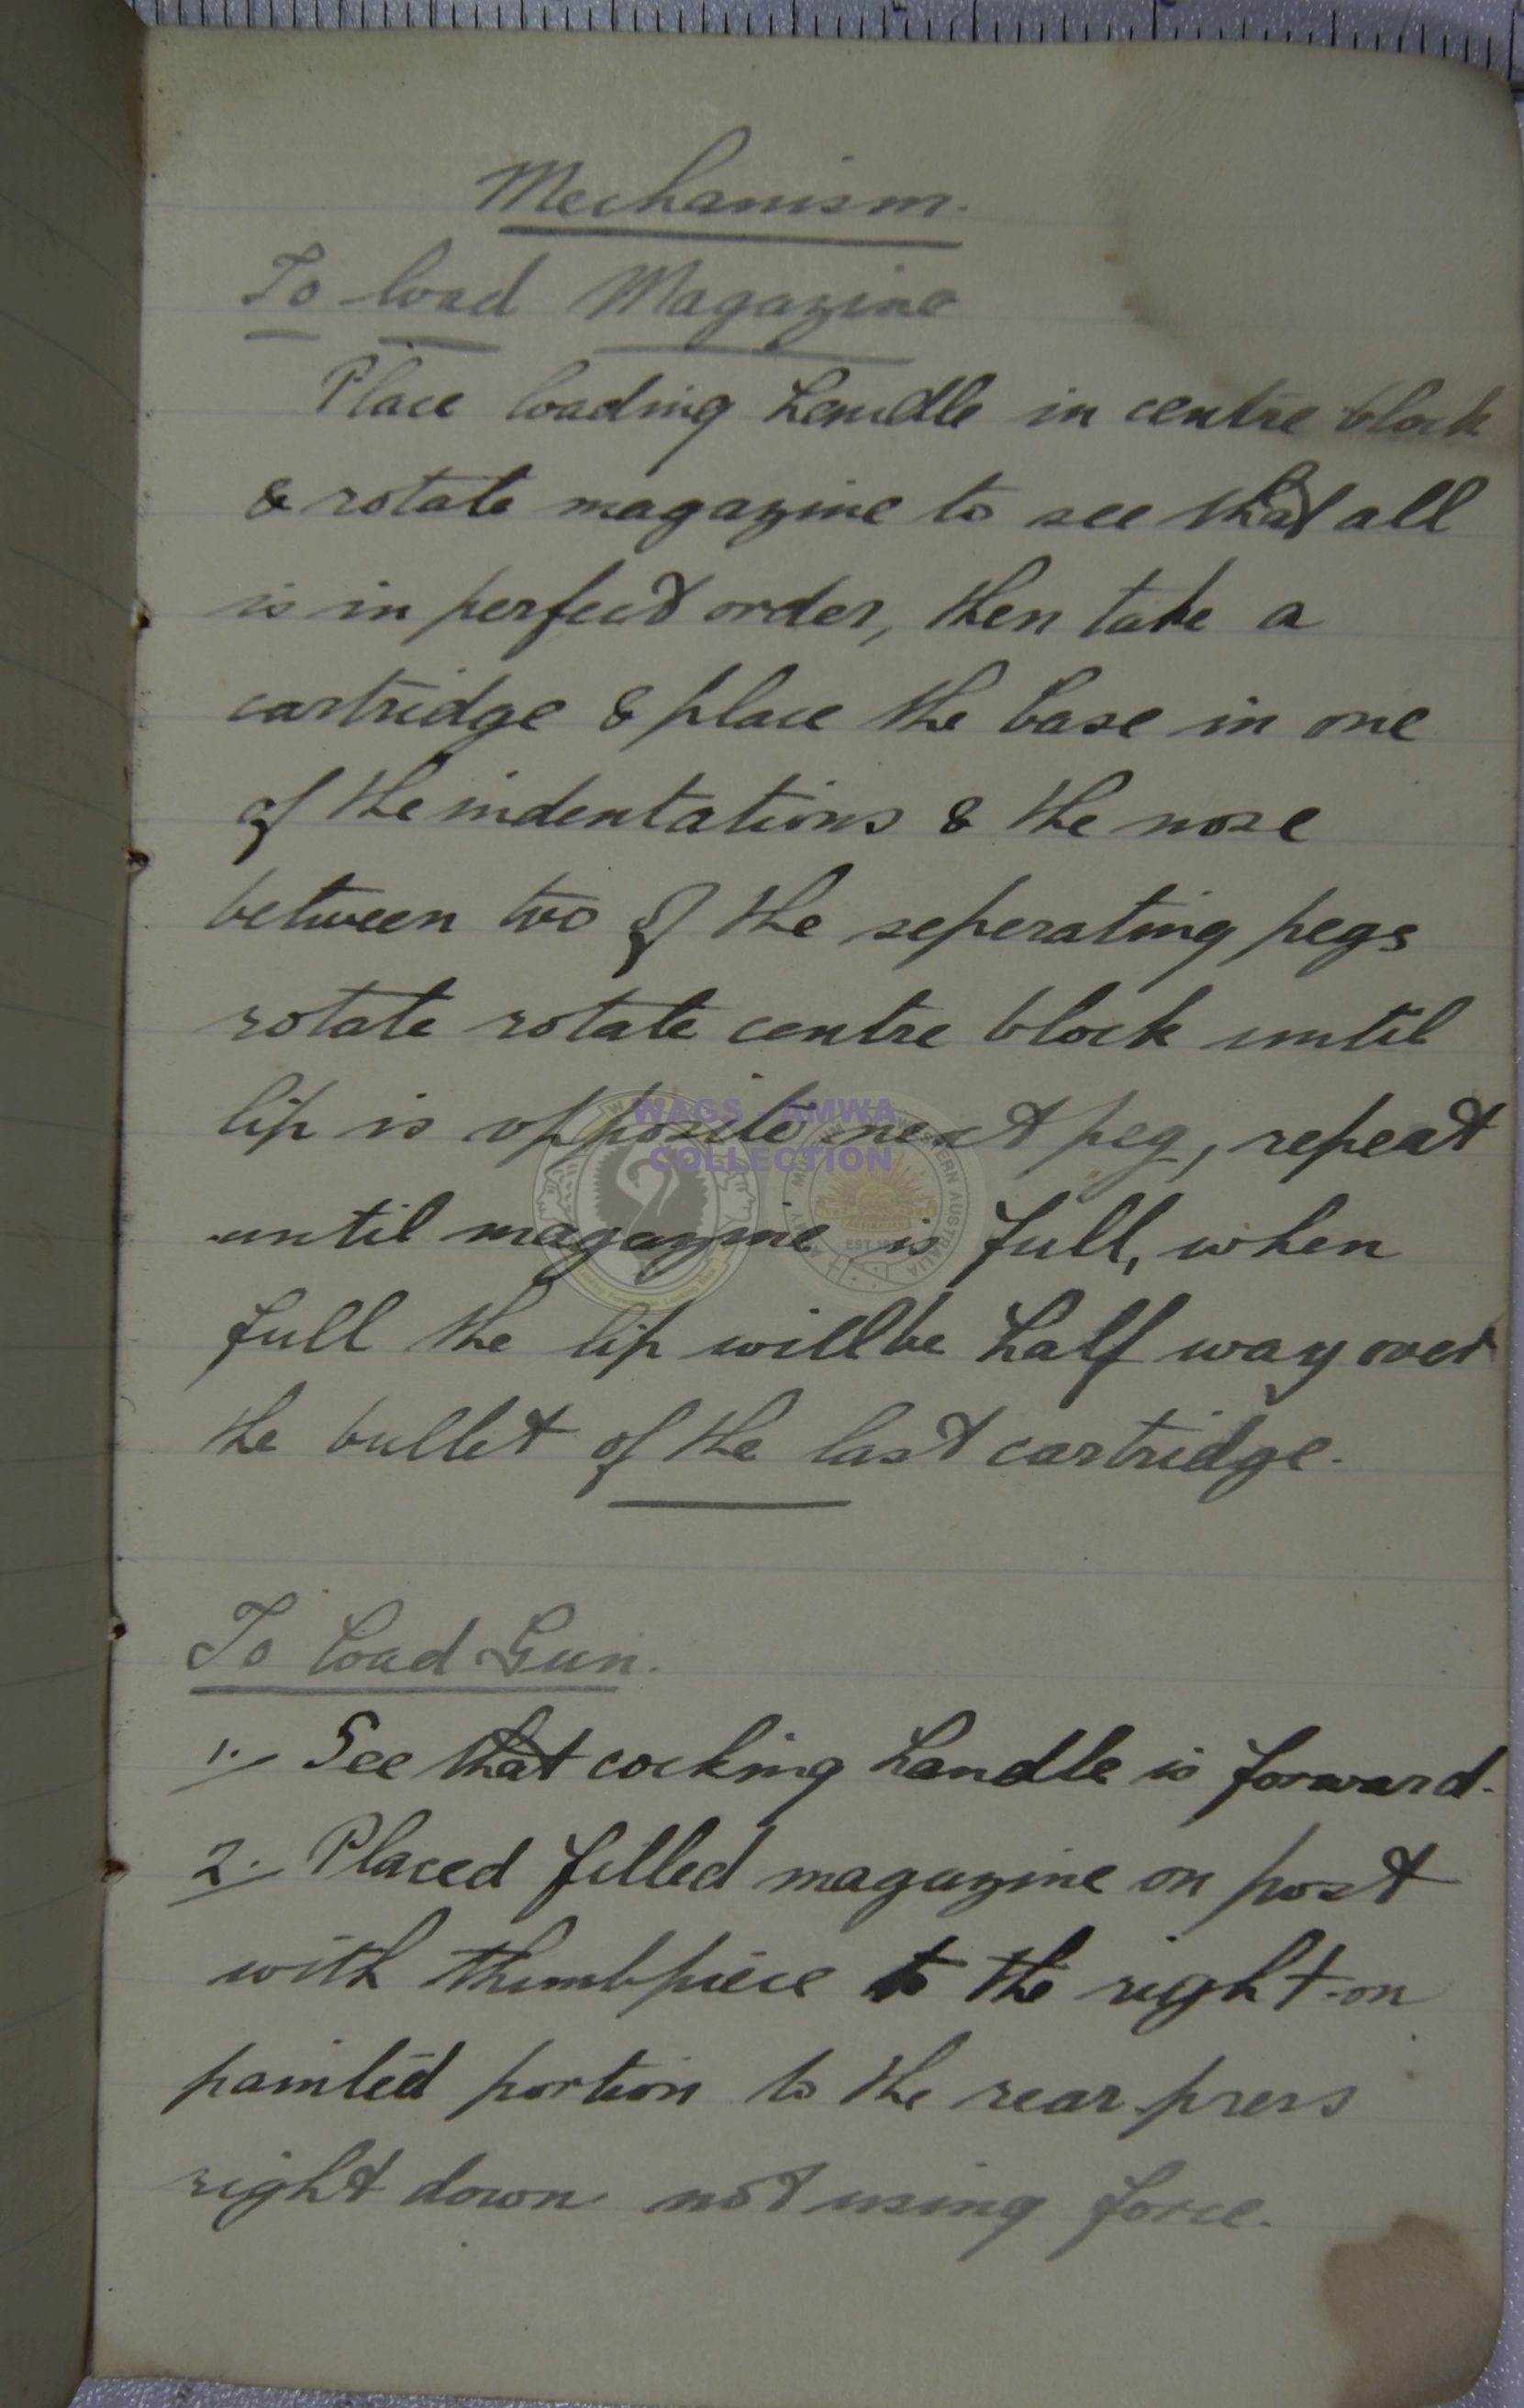 Mechanism.
To load Magazine
Place loading handle in centre block
& rotate magazine to see that all
is in perfect order, then take a
cartridge & place the base in one
of the indentations & the nose
between two of the seperating pegs
rotate rotate centre block until
lip is opposite next peg, repeat
until magazine is full, when
full the lip will be half way over
the bullet of the last cartridge.
To load Gun.
1. See that cocking handle is forward.
2. Placed filled magazine on post
with thumbpiece to the right on
painted portion to the rear press
right down not using force.
WAGS - AMWA
COLLECTION